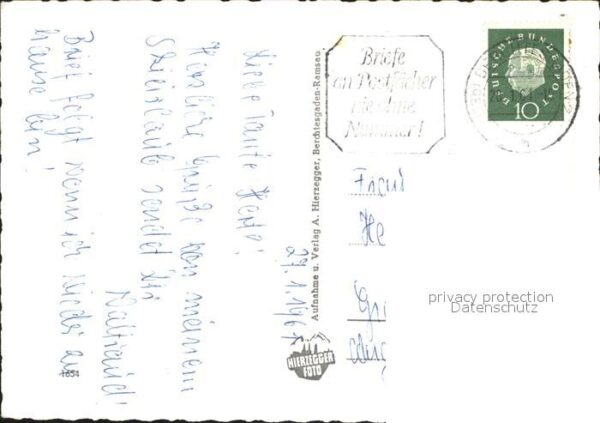 Liebe Tante
27.1.1961
Herzliche Grüße von meinem
sendet Dir
Waltraud!
Brief folgt wenn ich wieder zu
hause bin!
Aufnahme u. Verlag A. Hierzegger, Berchtesgaden-Ramsau
HIERZEGGER
FOTO
1654
Briefe
an Postfächer
nie ohne
Nummer!
DEUTSCHE BUNDESPOST
10
Frau
He
Gri
privacy protection
Datenschutz